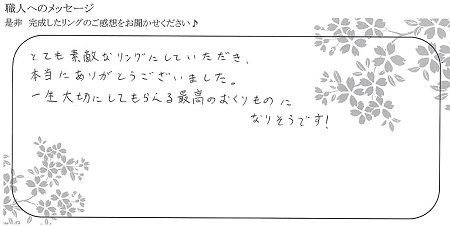 職人へのメッセージ
是非 完成したリングのご感想をお聞かせください♪
とても素敵なリングにしていただき、
本当にありがとうございました。
一生大切にしてもらえる最高のおくりものに
なりそうです!